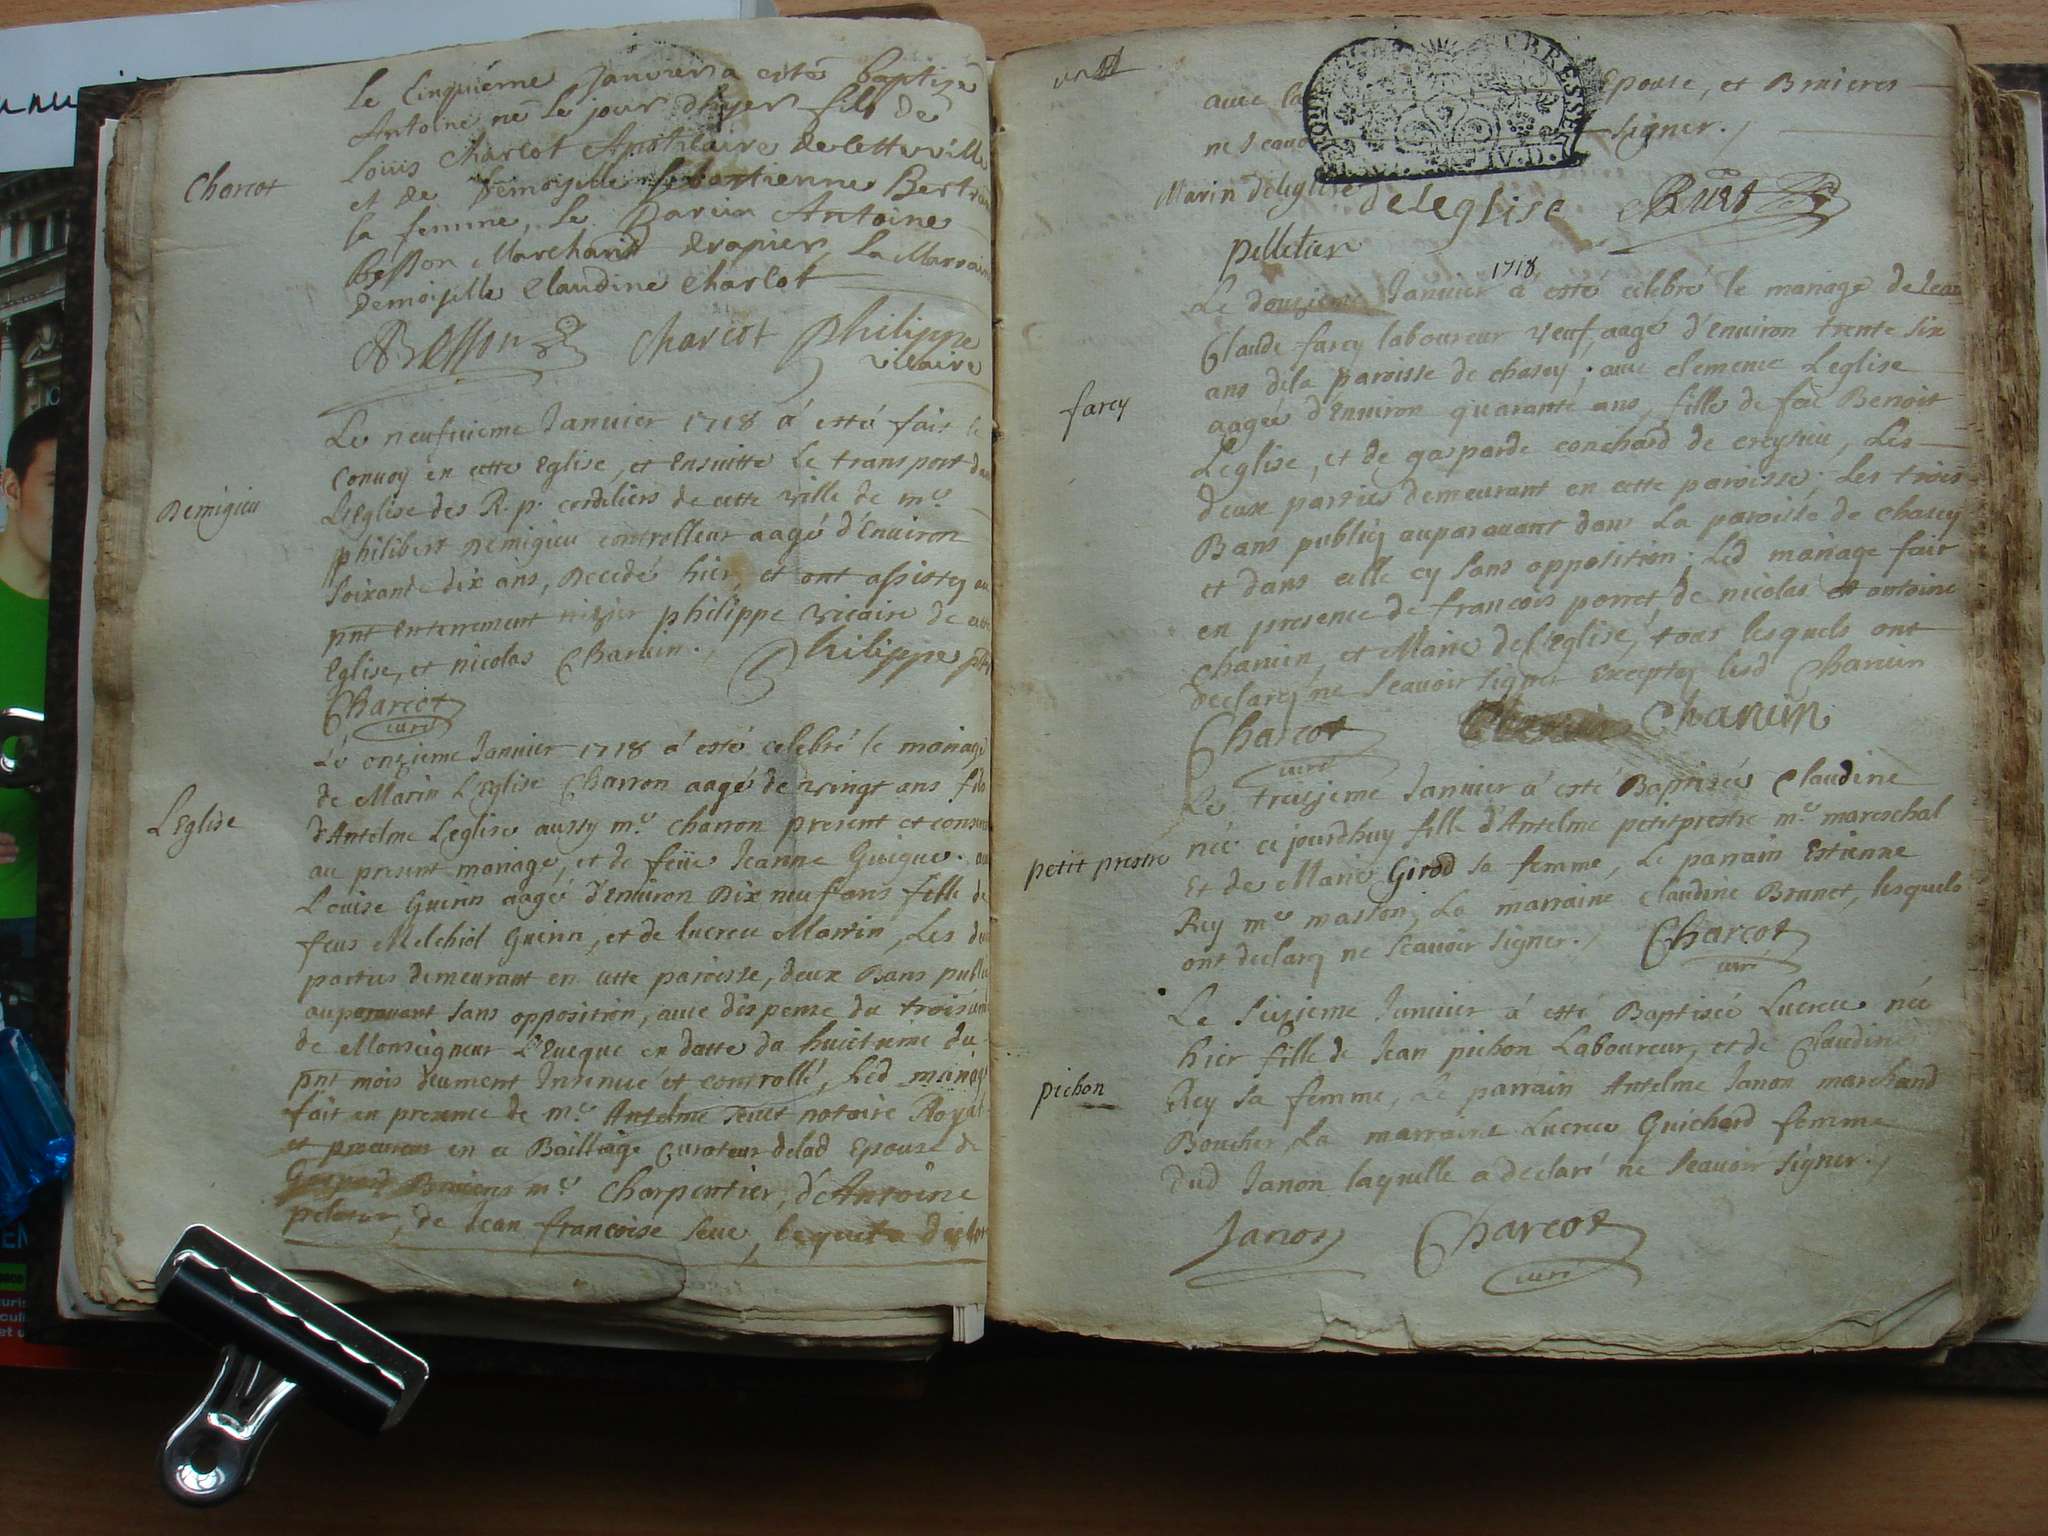 Le Cinquiéme Janvier a esté baptizé
Antoine né le jour d'hyer fils de
Louis Charcot Apothicaire de cette ville
Charcot
et de Demoyselle Sebastienne Bertra
sa femme, le Parain Antoine
besson Marchant drapier, La Marrain
Demoiselle Claudine Charcot
Besson Charcot Philippe
vicaire
Le neufvieme Janvier 1718 á esté fait le
convoy en cette Eglise, et Ensuitte Le transport da
Demigieu
L'Eglise des R. p. cordeliers de cette ville de me
philibert Demigieu controlleur aagé d'Environ
soixante dix ans, Decedé hier, et ont assistez au
pnt Enterrement philippe vicaire de cette
Eglise, et nicolas Charvin.
Philippe ptre
Charcot
curé
Le onzieme Janvier 1718 á esté celebré le mariage
de Marin L'Eglise Charron aagé de vingt ans fils
L'Eglise
d'Antelme Leglise aussy me charron present et conse
au present mariage, et de feüe Jeanne Guigue. au
Louise Guerin aagée d'Environ Dix neuf ans fille de
feus Melchiol Guerin, et de lucrece Martin, Les d
parties demeurant en cette paroisse, deux Bans publi
auparavant sans opposition, avec dispense du troisieme
de Monseigneur L'Eveque en datte du huictieme du
pnt mois deument Insinué et controllé, Led mariage
fait en presence de me Antelme notaire Royal
et procureur en ce Bailliage curateur delad Epouse de
me Charpentier, d'Antoine
de Jean françoise
avec la Epouse, et Brieres
ne scavo signer.
Marin deleglise deleglise
pelletier
1718
Le douzieme Janvier á esté celebré le mariage de Jean
Claude farcy laboureur veuf, aagé d'Environ trente six
ans dela paroisse de chasey; avec clemence Leglise
farcy
aagée d'Environ quarante ans, fille de feu Benoit
Leglise, et de gasparde conchard de creysieu, Les
deux parties demeurant en cette paroisse; Les trois
Bans publiez auparavant dans La paroisse de Chasey
et dans celle cy sans opposition; Led mariage fait
en presence de francois porret, de nicolas et antoine
Charvin, et Marie del'Eglise, tous lesquels ont
declaréz ne scavoir signer Exceptez lesd Charvin
Charcot Charvin
curé
Le treizieme Janvier á esté Baptisée Claudine
née ce jourdhuy fille d'Antelme petitprestre me mareschal
petit prestre
Et de Marie Girod sa femme, Le parrain Estienne
Rey me masson, La marraine Claudine Brunet, lesquels
ont declaréz ne scavoir signer.
Charcot
curé
Le seizieme Janvier á esté Baptisée Lucrece née
hier fille de Jean pichon Laboureur, et de Claudine
pichon
Rey sa femme, Le parrain Antelme Janon marchand
Boucher, La marraine Lucrece Guichard femme
dud Janon laquelle a declaré ne scavoir signer.
Janon Charcot
curé